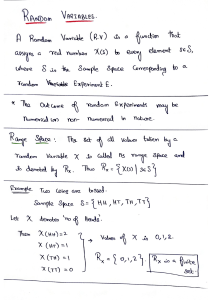 RANDOM VARIABLES.
A Random Variable (R.V) is a function that
assigns a real number X(s) to every element s∈S,
where S is the Sample Space corresponding to a
random Variable Experiment E.
* The Outcome of random Experiments may be
Numerical or non-numerical in nature.
Range Space: The set of all values taken by a
random Variable X is called its range space and
is denoted by Rx. Thus Rx = { X(s) | s∈S }
Example Two Coins are tossed.
Sample Space S = { HH, HT, TH, TT }
Let X denotes 'no of heads'.
Then X(HH) = 2
X(HT) = 1
X(TH) = 1
X(TT) = 0
→ Values of X is 0,1,2.
Rx = { 0,1,2 }
Rx is a finite
set.